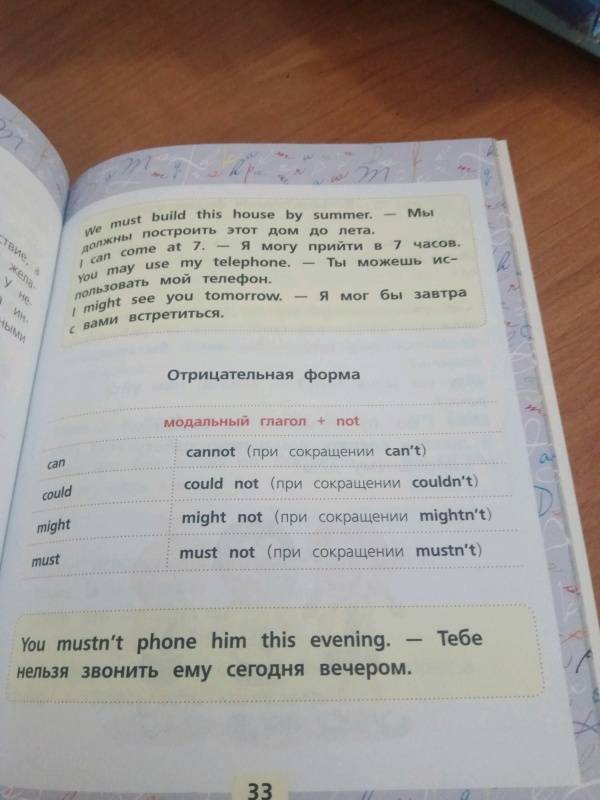 ствие, а
жела-
у не-
а ин-
ными
We must build this house by summer. — Мы
должны построить этот дом до лета.
I can come at 7. — Я могу прийти в 7 часов.
You may use my telephone. — Ты можешь ис-
пользовать мой телефон.
I might see you tomorrow. — Я мог бы завтра
с вами встретиться.
Отрицательная форма
модальный глагол + not
can cannot (при сокращении can't)
could could not (при сокращении couldn't)
might might not (при сокращении mightn't)
must must not (при сокращении mustn't)
You mustn't phone him this evening. — Тебе
нельзя звонить ему сегодня вечером.
33